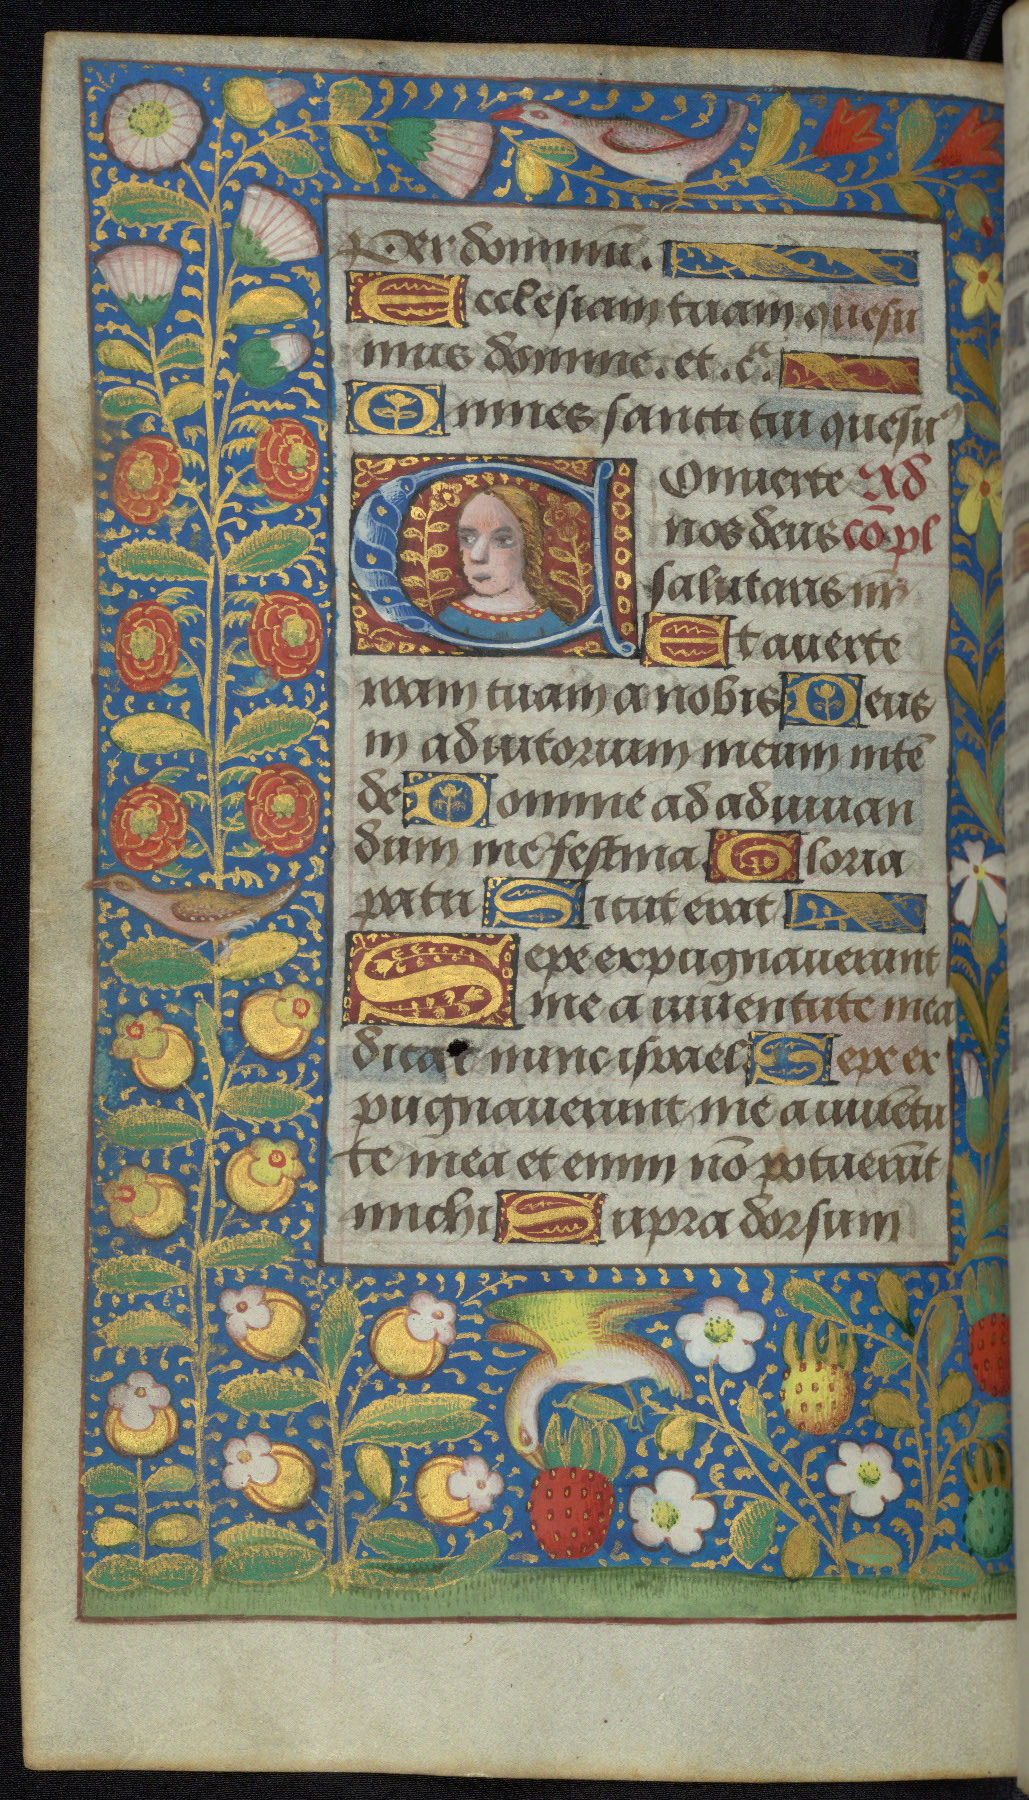 Per dominū.
Ecclesiam tuam quesu
mus domine. et. c̄.
Omnes sancti tui quesu⁹
Conuerte Ad
nos deus cōpl
salutaris nr̄
Et auerte
iram tuam a nobis Deus
in adiutorium meum intē
de Domine ad adiuuan
dum me festina Gloria
patri Sicut erat
Sepe expugnauerunt
me a iuuentute mea
dicat nunc israel Sepe ex
pugnauerunt me a iuuētu
te mea et enim nō potuerūt
michi Supra dorsum